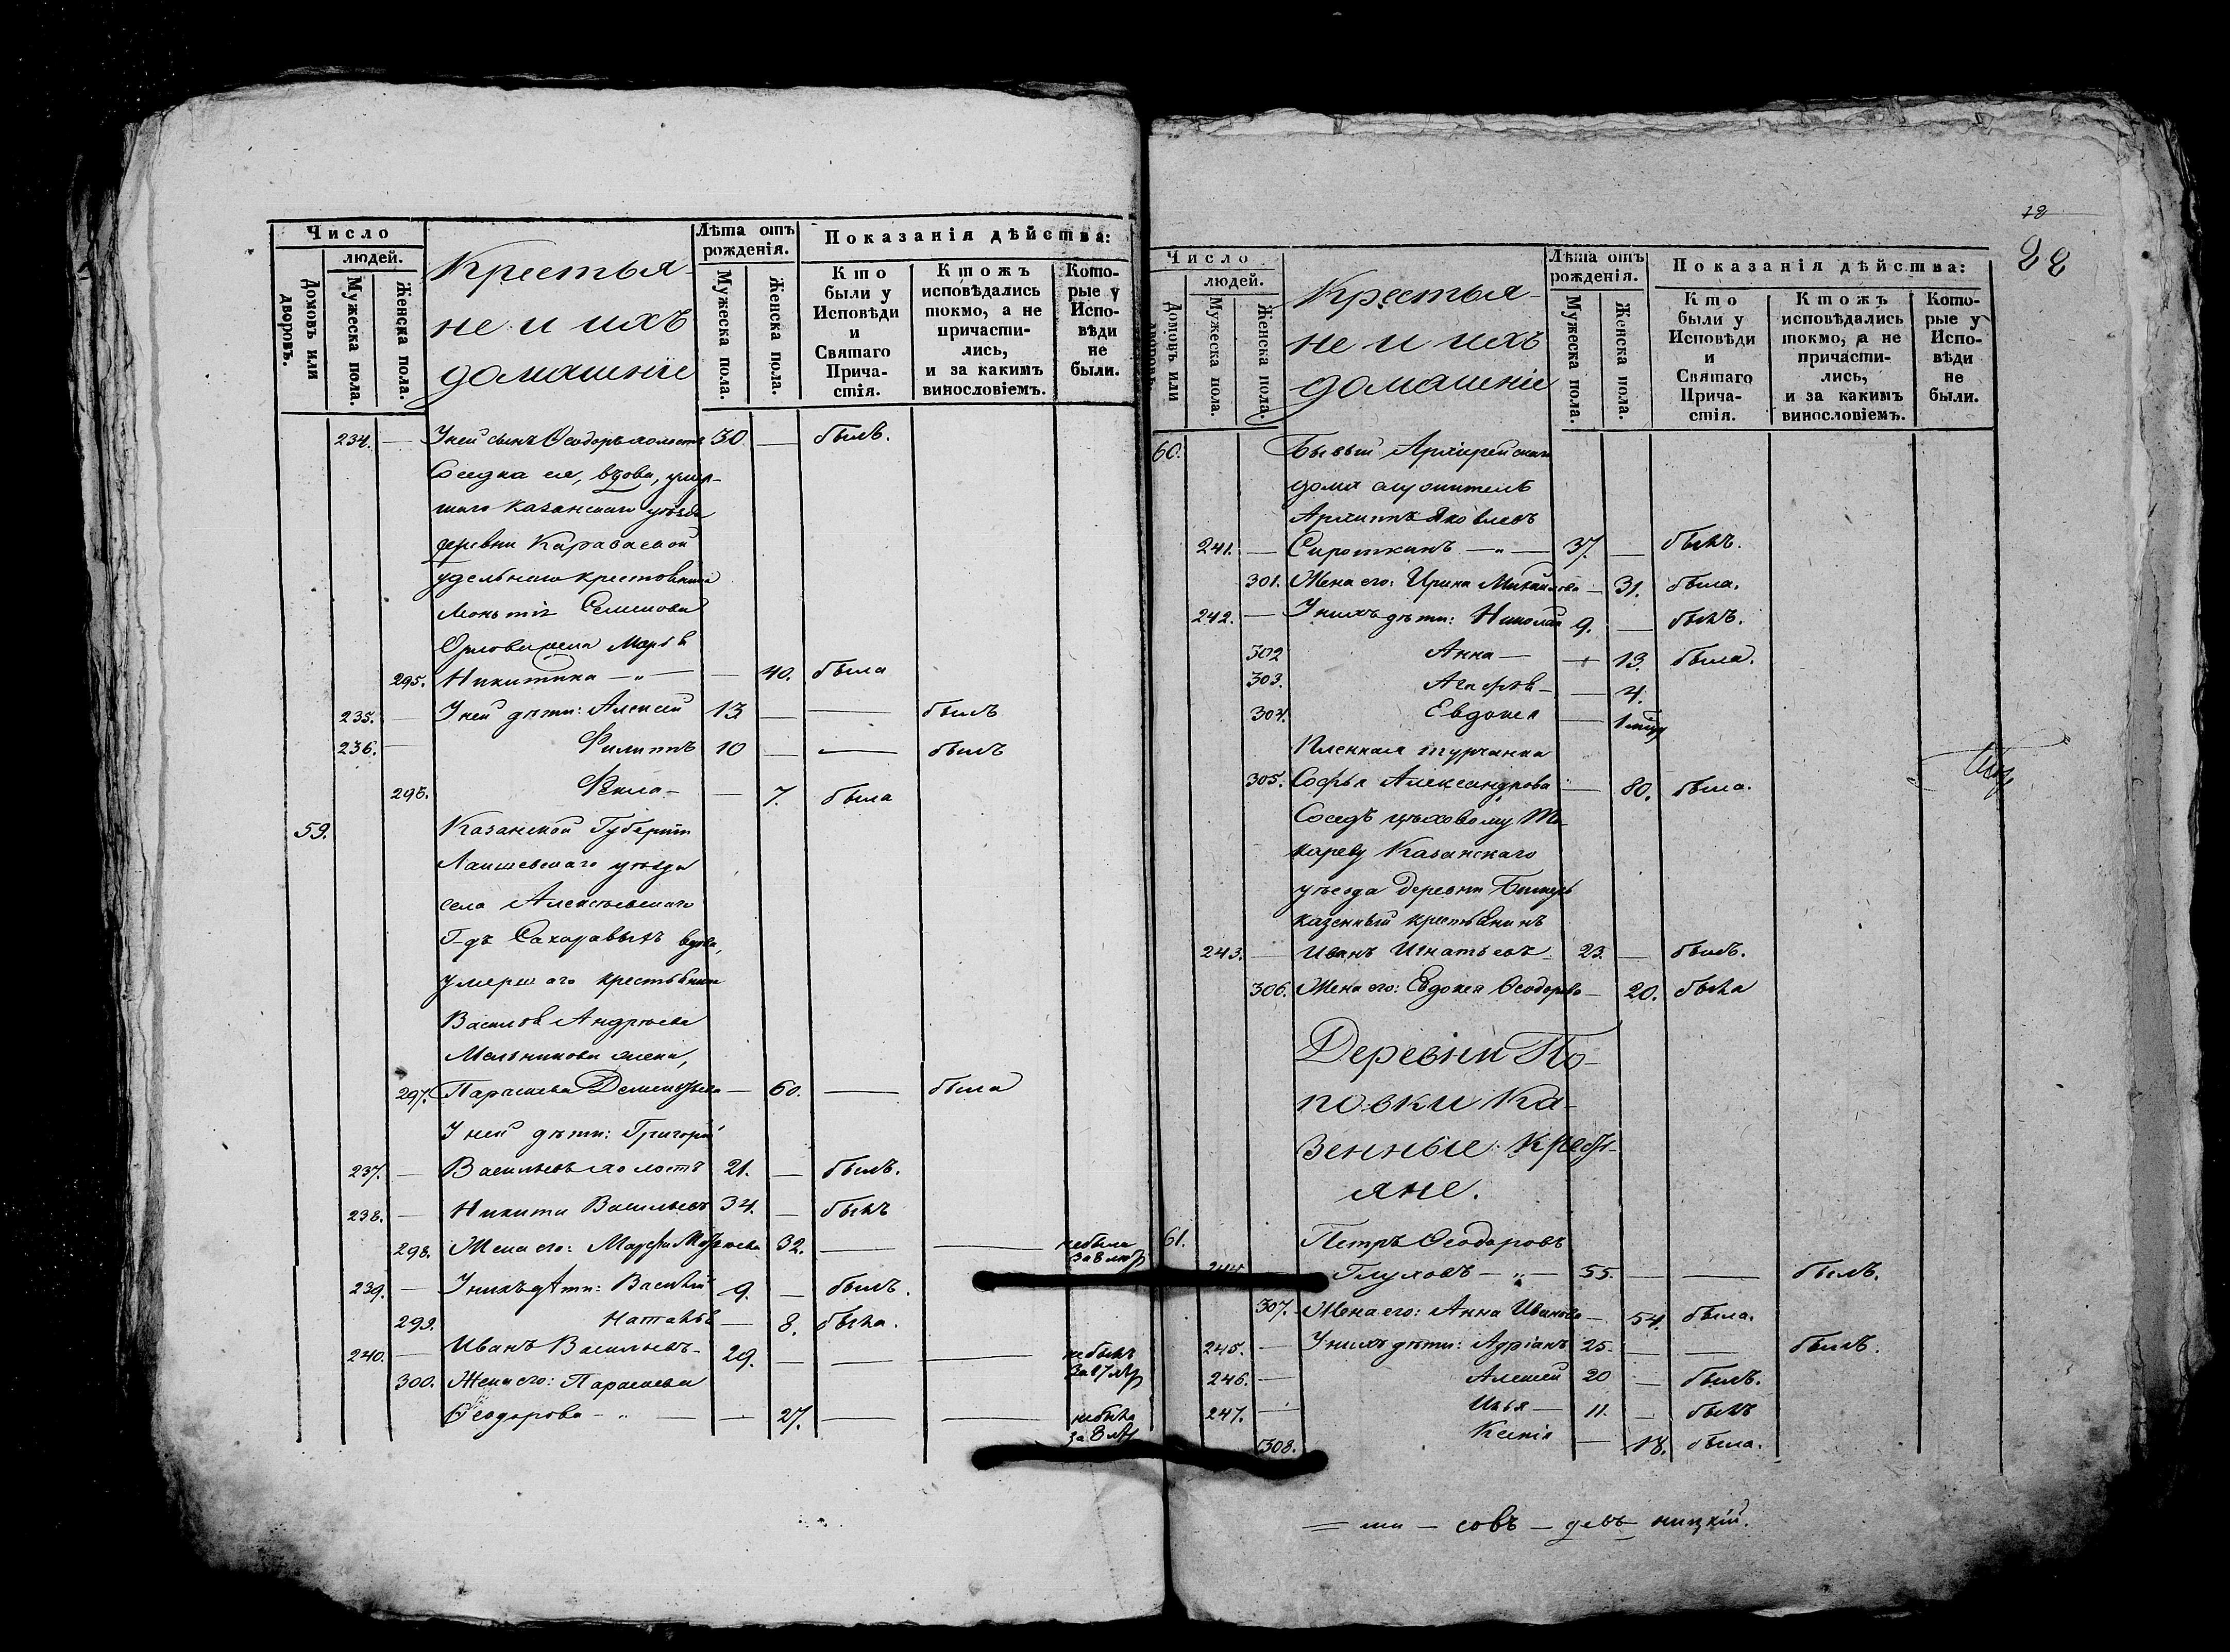 Число
людей.
Домовъ или дворовъ.
Мужеска пола.
Женска пола.
Крестья-
не и ихъ
домашніе
Лѣта отъ рожденія.
Мужеска пола.
Женска пола.
Показанія дѣйства:
Кто были у Исповѣди и Святаго Прича-стія.
Ктожъ исповѣдались токмо, а не причасти-лись, и за какимъ винословіемъ.
Кото-рые у Испо-вѣди не были.
234. — У ней сынъ Ѳеодоръ холостъ 30 — былъ.
Соседка ея, вдова, умер-
шаго Казанскаго уѣзда
деревни Караваевой
удельнаго крестьянина
Семенова
Орлова жена Марья
295. Никитина — „ — — 40. была
235. — У ней дѣти: Алексей 13 — — былъ
236. — Филиппъ 10 — — былъ
296. Фекла — — 7. была
59. Казанской Губерніи
Лаишевскаго уѣзда
села Алексѣевскаго
Г-дъ Сахаровыхъ вдова,
умершаго крестьянина
Василья Андрѣева
Мельникова жена,
297. Параскева Дементьева — 60. — была
У ней дѣти: Григорій
237. — Васильевъ холостъ 21. — былъ.
238. — Никита Васильевъ 34. — былъ
298. Жена его: Марфа 32. — — не была
239. — У нихъ дѣти: Василій 9. — былъ.
299. Наталья — 8. была.
240. — Иванъ Васильевъ — 29. — — — не былъ
300. Жена его: Параскева
Ѳеодорова — „ — — 27. — — не была
за 8
18
22
Число
людей.
Домовъ или дворовъ.
Мужеска пола.
Женска пола.
Крестья-
не и ихъ
домашніе
Лѣта отъ рожденія.
Мужеска пола.
Женска пола.
Показанія дѣйства:
Кто были у Исповѣди и Святаго Прича-стія.
Ктожъ исповѣдались токмо, а не причасти-лись, и за какимъ винословіемъ.
Кото-рые у Испо-вѣди не были.
60. Бывый Архіерейскаго
дома служитель
Архиппъ Яковлевъ
241. — Сироткинъ — „ — 37. — былъ.
301. Жена его: Ирина Михайлова — 31. была.
242. — У нихъ дѣти: Николай 9. — былъ.
302 Анна — — 13. была.
303. Агафья — — 4.
304. Евдокея — 1
Пленная турчанка
305. Софья Александрова — 80. была.
Соседъ цѣховому То-
кареву Казанскаго
уѣзда деревни
казенный крестьянинъ
243. — Иванъ Игнатьевъ 23. — былъ.
306. Жена его: Евдокея Ѳеодорова — 20. была
Деревни По-
повки Ка-
зенные Кресть-
яне.
61. Петръ Ѳеодоровъ
244. Глуховъ — „ — 55. — — былъ.
307. Жена его: Анна Иванова — 54. была.
245. — У нихъ дѣти: Адріанъ 25. — — былъ.
246. — Алексей 20 — былъ.
247. — Илья — 11. — былъ
308. Ксенія — 18. была.
— совъ — девъ